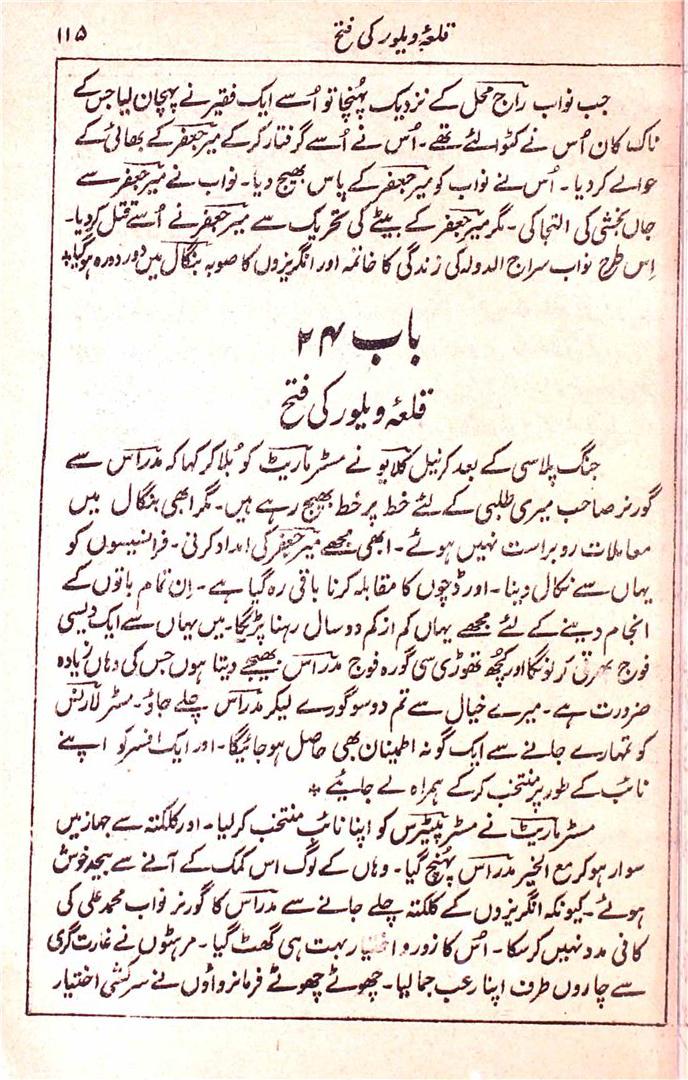 ۱۱۵
قلعۂ ویلور کی فتح
جب نواب راج محل کے نزدیک پہنچا تو اُسے ایک فقیر نے پہچان لیا جس کے
ناک کان اُس نے کٹوا لئے تھے۔ اُس نے اُسے گرفتار کرکے میر جعفر کے بھائی کے
حوالے کردیا۔ اُس نے نواب کو میر جعفر کے پاس بھیج دیا۔ نواب نے میر جعفر سے
جاں بخشی کی التجا کی۔ مگر میر جعفر کے بیٹے کی تحریک سے میر جعفر نے اُسے قتل کردیا۔
اِس طرح نواب سراج الدولہ کی زندگی کا خاتمہ اور انگریزوں کا صوبہ بنگال میں دور دورہ ہوگیا٭
باب ۲۴
قلعۂ ویلور کی فتح
جنگ پلاسی کے بعد کرنیل کلایو نے مسٹر ماریٹ کو بُلا کر کہا کہ مدراس سے
گورنر صاحب میری طلبی کے لئے خط پر خط بھیج رہے ہیں۔ مگر ابھی بنگال میں
معاملات روبراست نہیں ہوئے۔ ابھی مجھے میر جعفر کی امداد کرنی۔ فرانسیسوں کو
یہاں سے نکال دینا۔ اور ڈچوں کا مقابلہ کرنا باقی رہ گیا ہے۔ اِن تمام باتوں کے
انجام دینے کے لئے مجھے یہاں کم از کم دو سال رہنا پڑیگا۔ میں یہاں سے ایک دیسی
فوج بھرتی کرلونگا اور کچھ تھوڑی سی گورہ فوج مدراس بھیجے دیتا ہوں جس کی وہاں زیادہ
ضرورت ہے۔ میرے خیال سے تم دو سو گورے لیکر مدراس چلے جاؤ۔ مسٹر لارنس
کو تمہارے جانے سے ایک گونہ اطینان بھی حاصل ہوجائیگا۔ اور ایک افسر کو اپنے
نائب کے طور پر منتخب کرکے ہمراہ لے جایئے ٭
مسٹر ماریٹ نے مسٹر پیٹرس کو اپنا نائب منتخب کرلیا۔ اور کلکتہ سے جہاز میں
سوار ہوکر مع الخیر مدراس پہنچ گیا۔ وہاں کے لوگ اس کمک کے آنے سے بیحد خوش
ہوئے۔ کیونکہ انگریزوں کے کلکتہ چلے جانے سے مدراس کا گورنر نواب محمد علی کی
کافی مدد نہیں کرسکا۔ اُس کا زور و اختیار بہت ہی گھٹ گیا۔ مرہٹوں نے غارت گری
سے چاروں طرف اپنا رعب جما لیا۔ چھوٹے چھوٹے فرمانرواؤں نے سرکشی اختیار